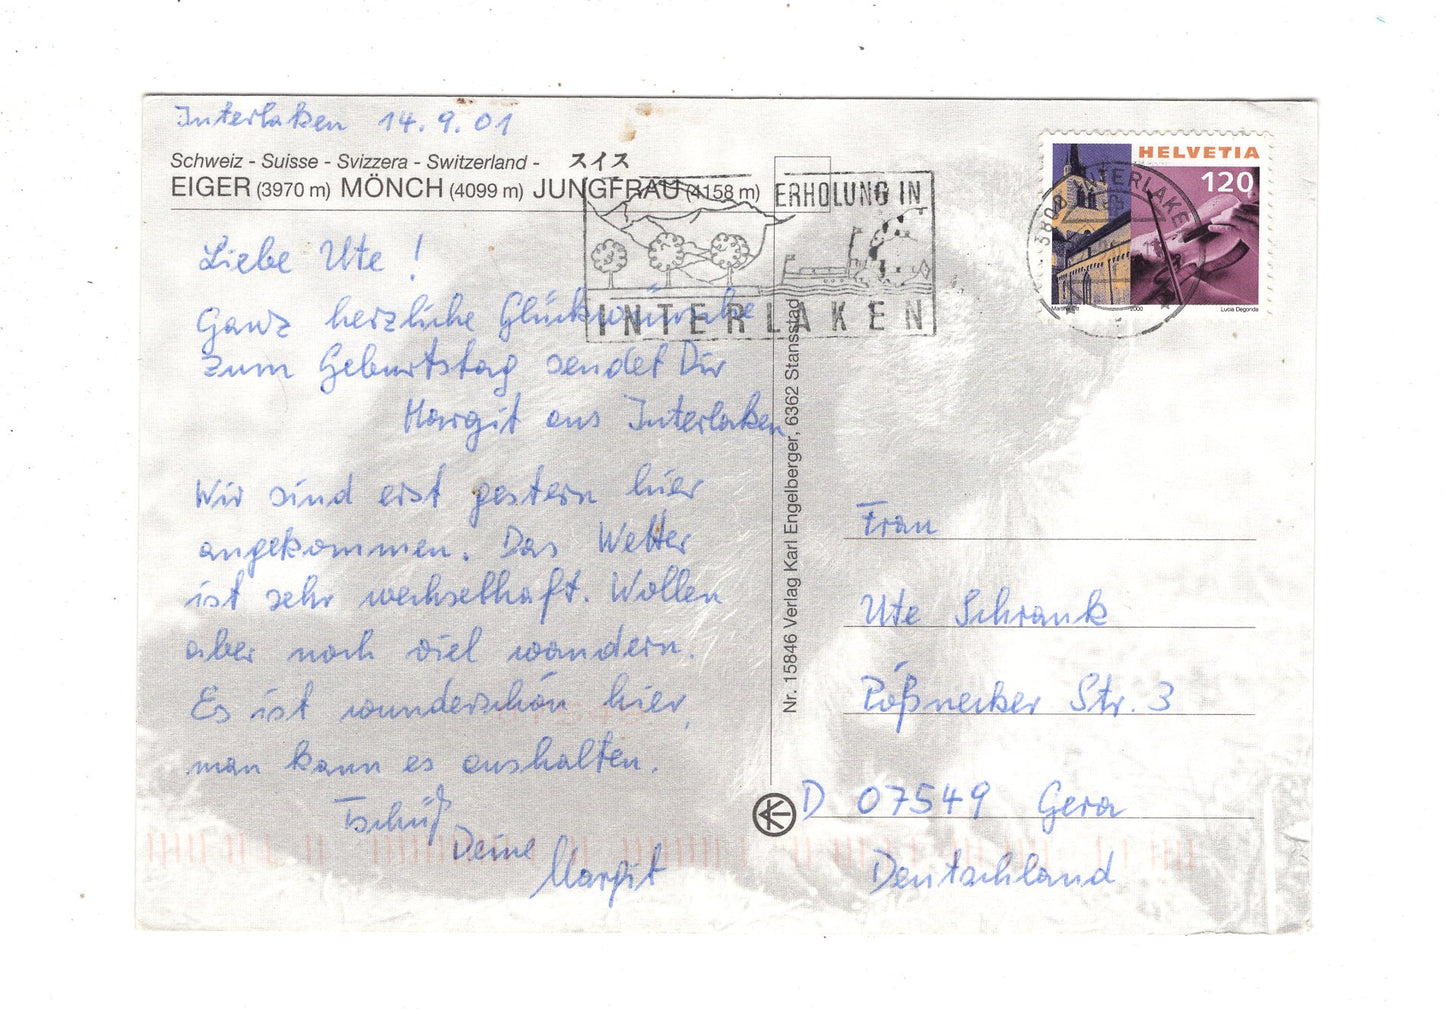 Interlaken 14.9.01
Schweiz - Suisse - Svizzera - Switzerland - スイス
EIGER (3970 m) MÖNCH (4099 m) JUNGFRAU (4158 m)
Liebe Ute!
Ganz herzliche Glückwünsche
zum Geburtstag sendet Dir
Margit aus Interlaken.
Wir sind erst gestern hier
angekommen. Das Wetter
ist sehr wechselhaft. Wollen
aber noch viel wandern.
Es ist wunderschön hier,
man kann es aushalten.
Tschüß
Deine
Margit
ERHOLUNG IN
INTERLAKEN
Nr. 15846 Verlag Karl Engelberger, 6362 Stansstad
HELVETIA
120
2000
Lucia Degonda
INTERLAKEN
Frau
Ute Schrank
Pößnecker Str. 3
D 07549 Gera
Deutschland